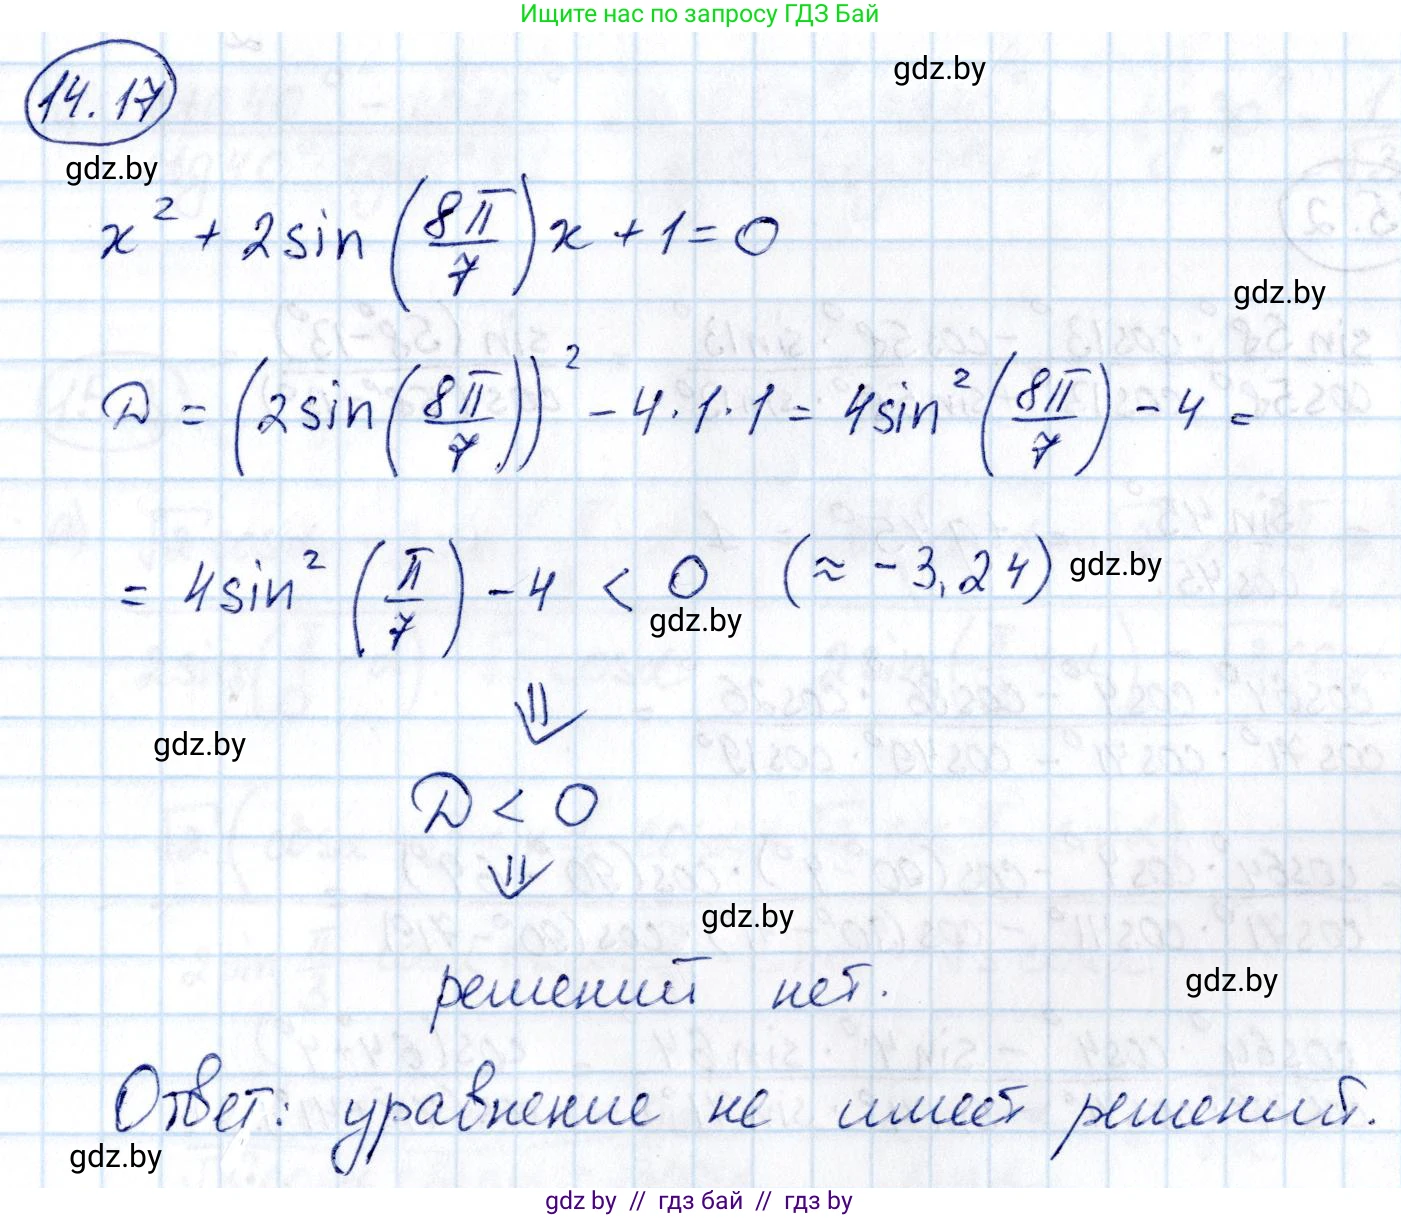 Ищите нас по запросу ГДЗ Бай
14.17
gdz.by
gdz.by
x² + 2sin(8π/7)x + 1 = 0
gdz.by
D = (2sin(8π/7))² - 4·1·1 = 4sin²(8π/7) - 4 =
= 4sin²(π/7) - 4 < 0 (≈ -3,24)
gdz.by
gdz.by
⇓
gdz.by
D < 0
⇓
gdz.by
решений нет.
gdz.by
Ответ: уравнение не имеет решений.
gdz.by
gdz by // гдз бай // гдз by